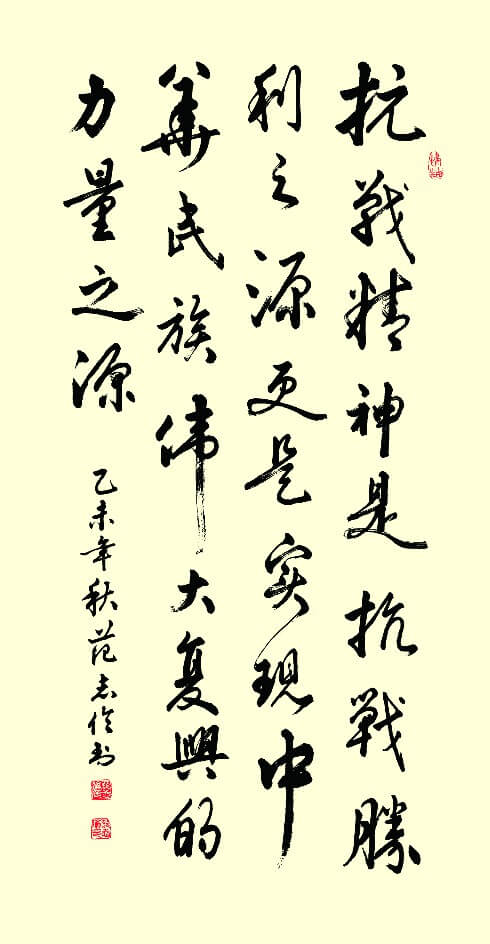 抗戰精神是抗戰勝
利之源更是实現中
華民族伟大复興的
力量之源
乙未年秋范志佺书